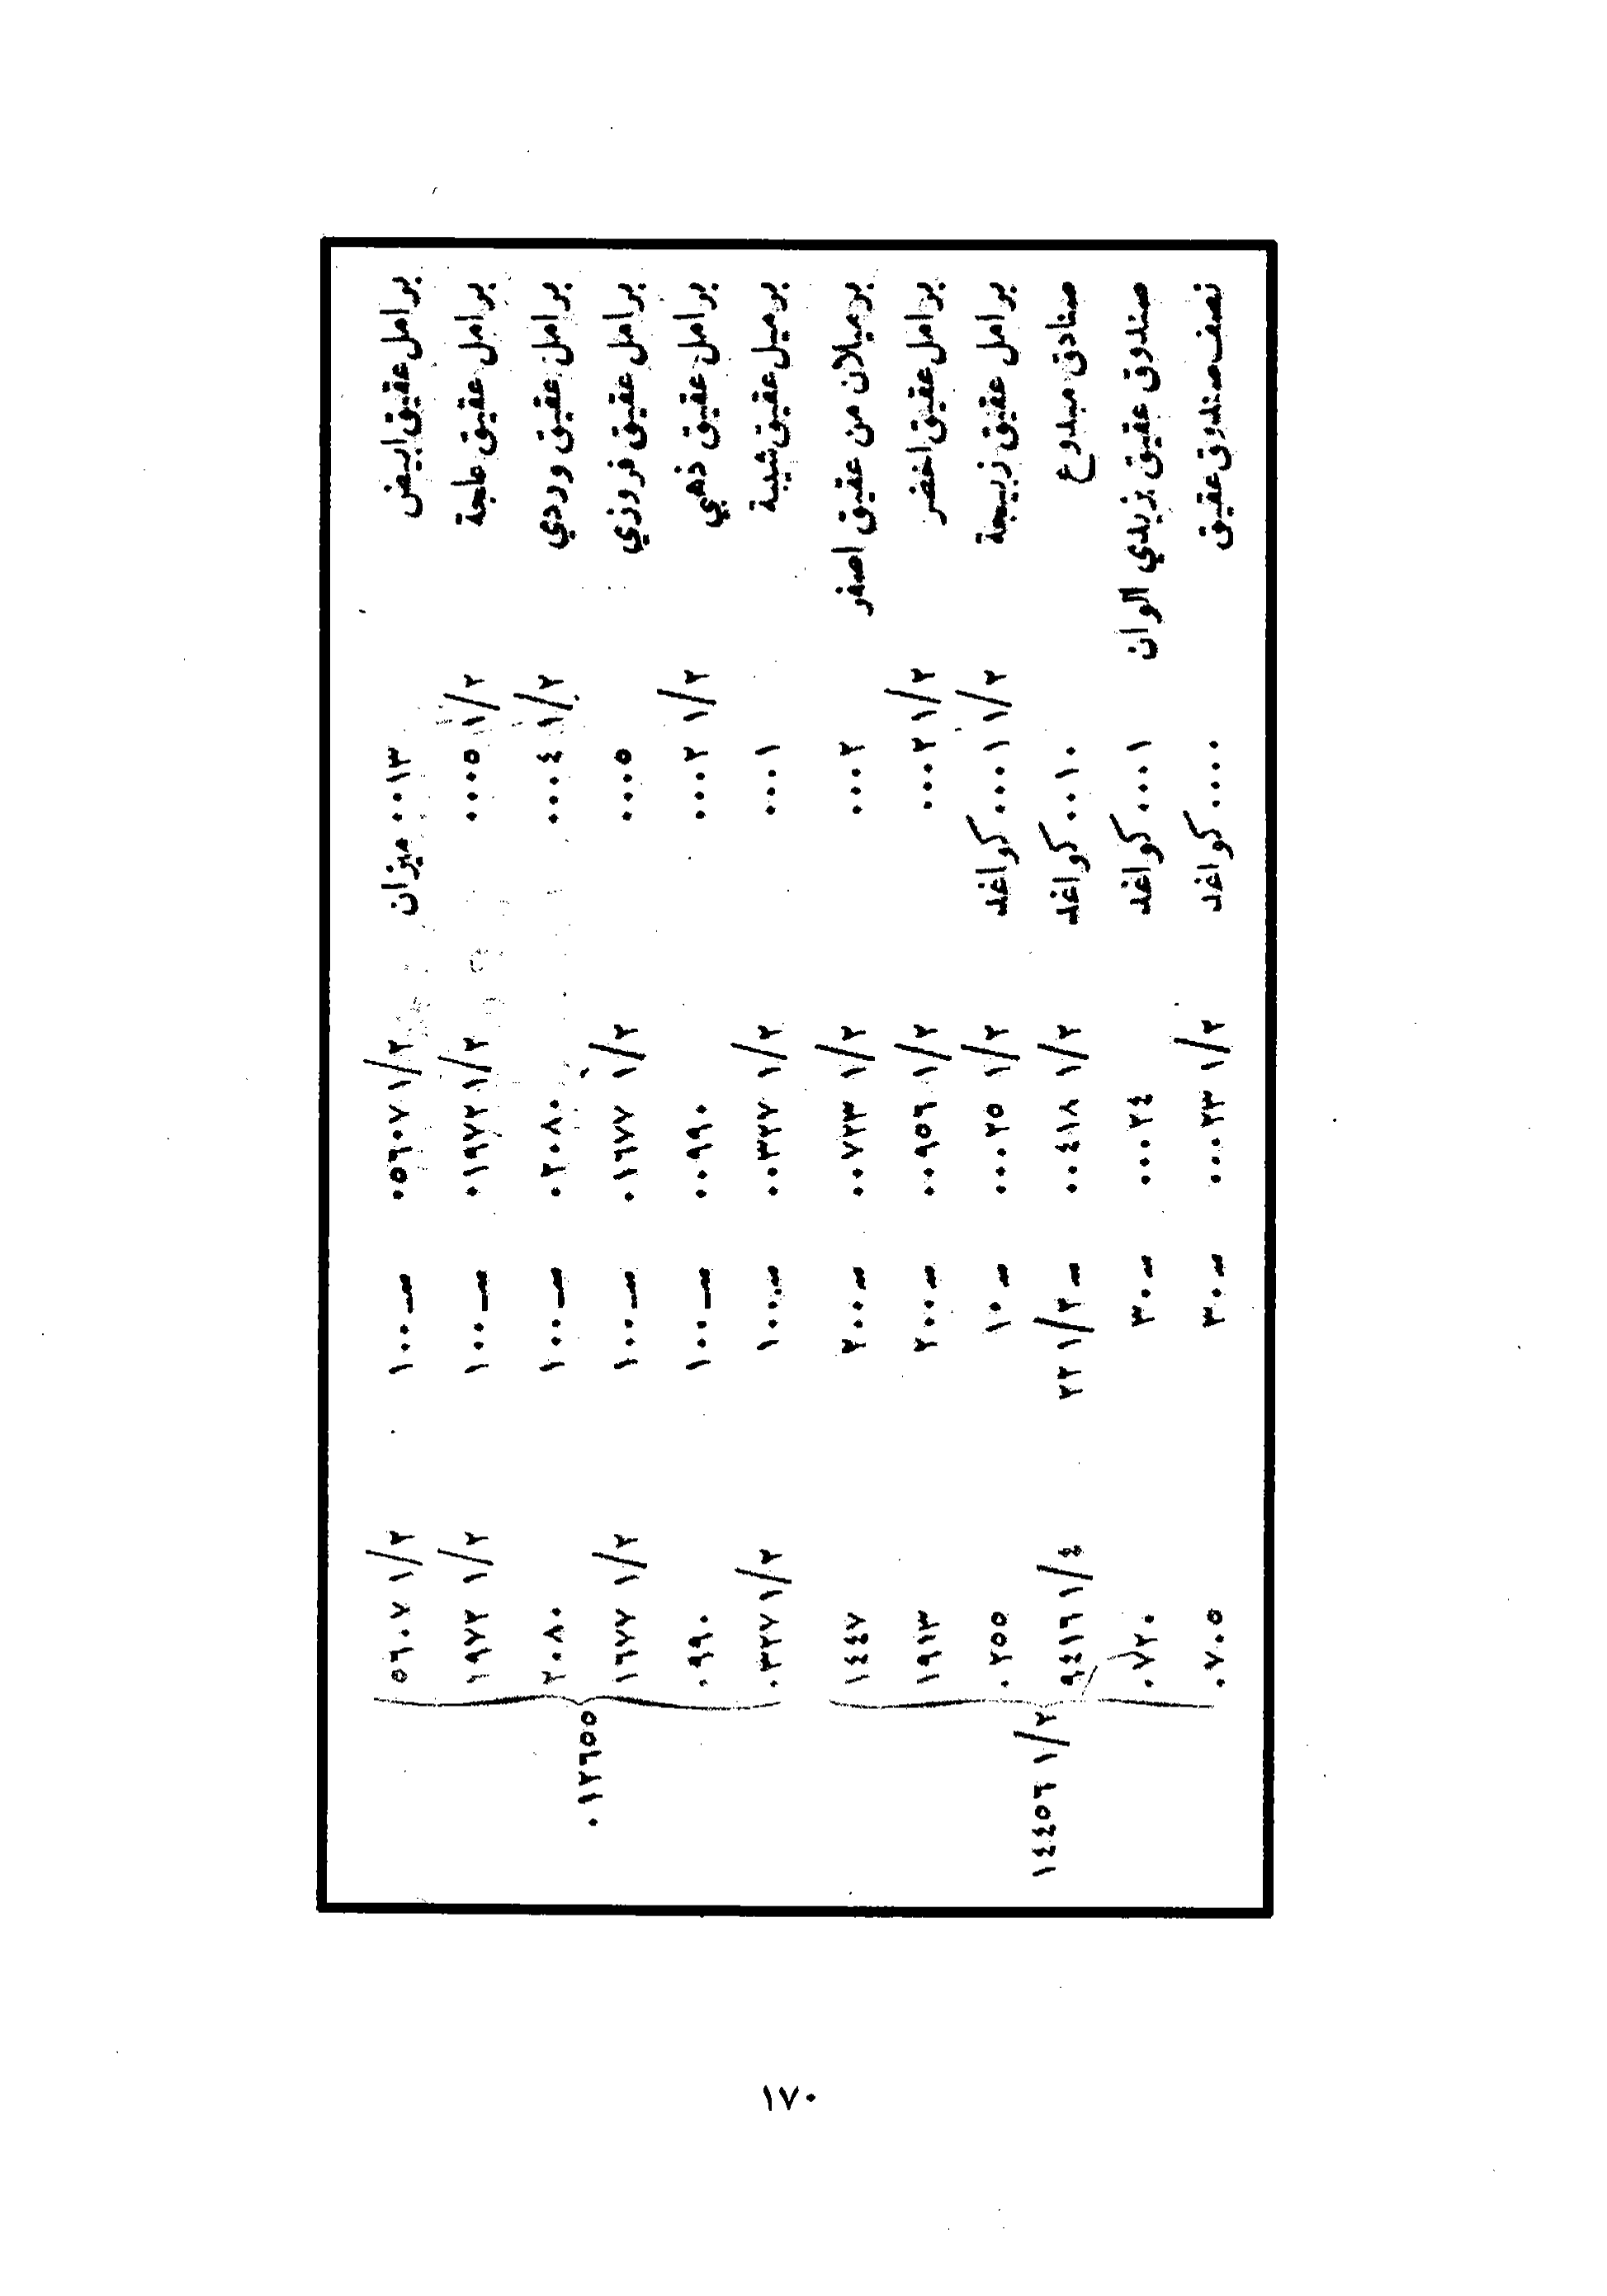 برامل عقيق ابيض ٠٠١٣ ميزان ٠٥٦٠٧ ١/٢ ١٠٠ ٥٦٠٧ ١/٢
برامل عقيق ٠٠٠٥ ١/٢ ٠١٩٧٢ ١/٢ ١٠٠ ١٩٧٢ ١/٢
برامل عقيق وردي ٠٠٠٤ ١/٢ ٠٢٠٨٠ ١٠٠ ٢٠٨٠
٠١٢٦٥٥
برامل عقيق فروزي ٠٠٠٥ ٠١٦٧٧ ١/٢ ١٠٠ ١٦٧٧ ١/٢
برامل عقيق ذهبي ٠٠٠٢ ١/٢ ٠٠٩٩٠ ١٠٠ ٠٩٩٠
برميل عقيق شيبة ٠٠٠١ ٠٠٣٢٧ ١/٢ ١٠٠ ٠٣٢٧ ١/٢
برميلان من عقيق اصفر ٠٠٠٢ ٠٠٧٢٣ ١/٢ ٢٠٠ ١٤٤٧
برامل عقيق اخضر ٠٠٠٢ ١/٢ ٠٠٩٥٦ ١/٢ ٢٠٠ ١٩١٣
برامل عقيق زبيجة ٠٠٠١ ١/٢ كواغد ٠٠٠٢٥ ١/٢ ١٠ ٠٢٥٥
١٤٤٥٦ ١/٢
صنادق مبدوع ٠٠١٠ كواغد ٠٠٤١٨ ١/٢ ٢٢ ١/٢ ٩٤١٦ ١/٤
صندوق عقيق يزيدي الوان ٠٠٠١ كواغد ٠٠٠٢٤ ٣٠ ٠٧٢٠
نصف صندوق عقيق ٠٠٠٠ كواغد ٠٠٠٢٣ ١/٢ ٣٠ ٠٧٠٥
١٧٠